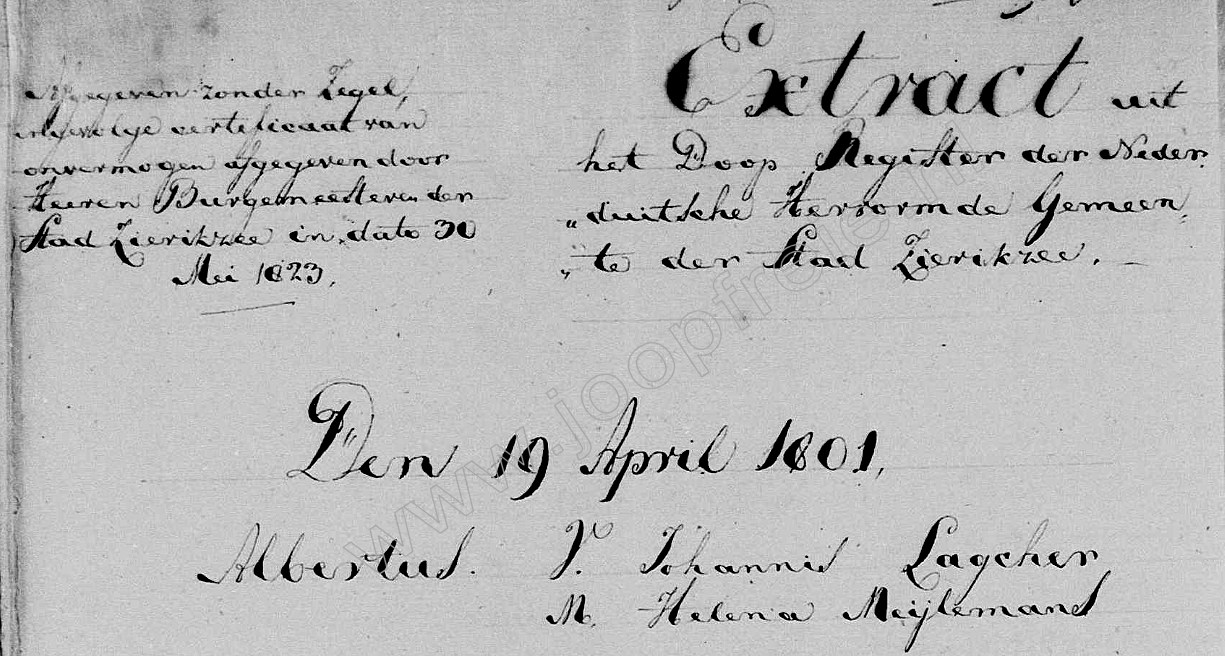 Afgegeven zonder Zegel,
ingevolge certificaat van
onvermogen afgegeven door
Heeren Burgemeesteren der
Stad Zierikzee in dato 30
Mei 1823.
Extract uit
het Doop Register der Neder
„duitsche Hervormde Gemeen„
„te der Stad Zierikzee. —
Den 19 April 1801,
Albertus. V. Johannis Lagcher
M. Helena Meijlemans